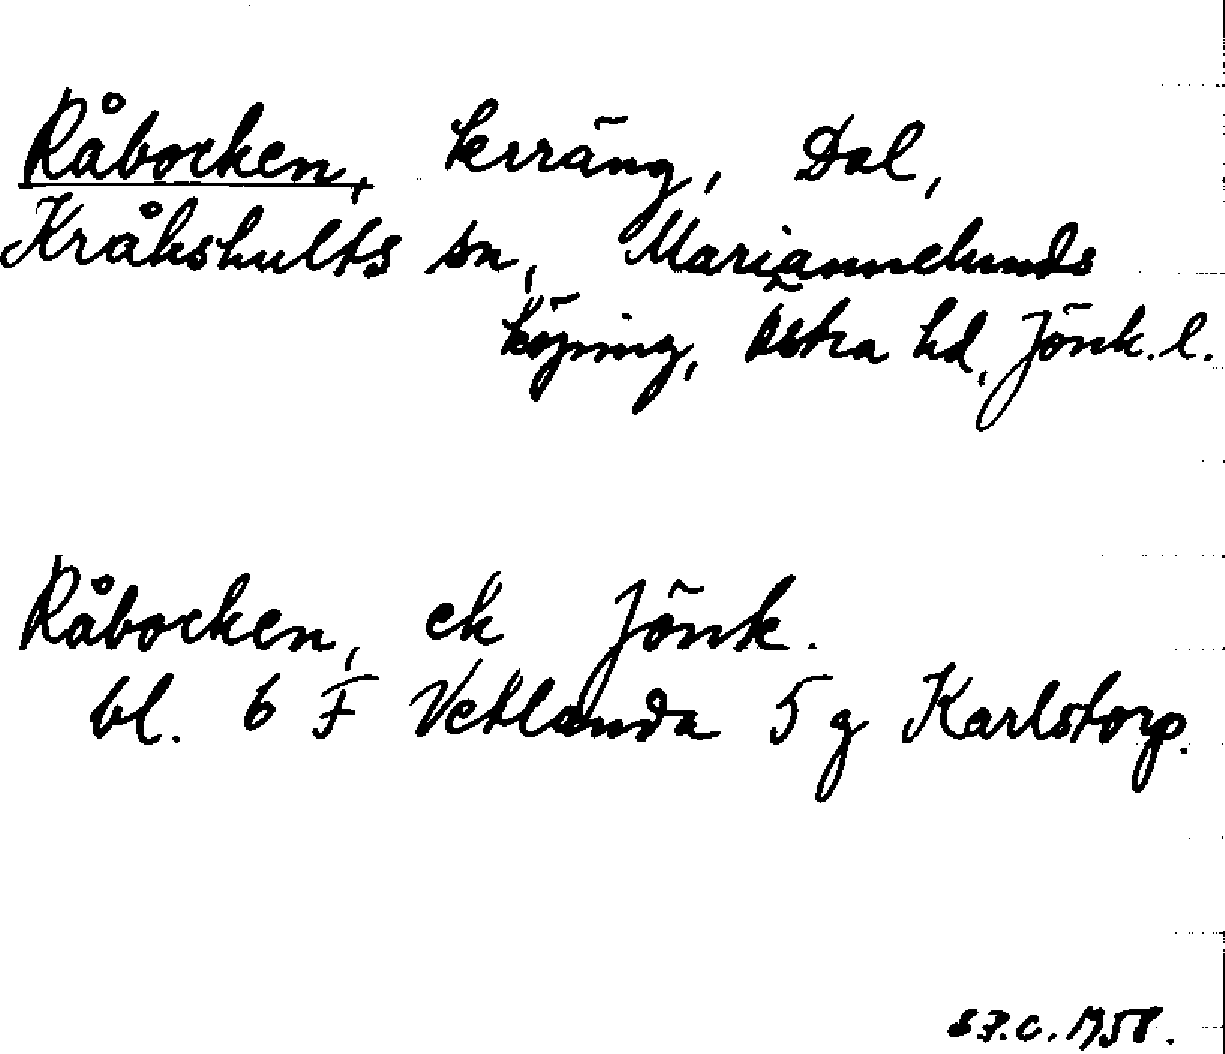 Råbocken, kerräng, Dal,
Kråkshults sn, Mariannelunds
köping, Östra hd, Jönk. l.
Råbocken, ek Jönk.
bl. 6 F Vetlanda 5 g Karlstorp.
1958.